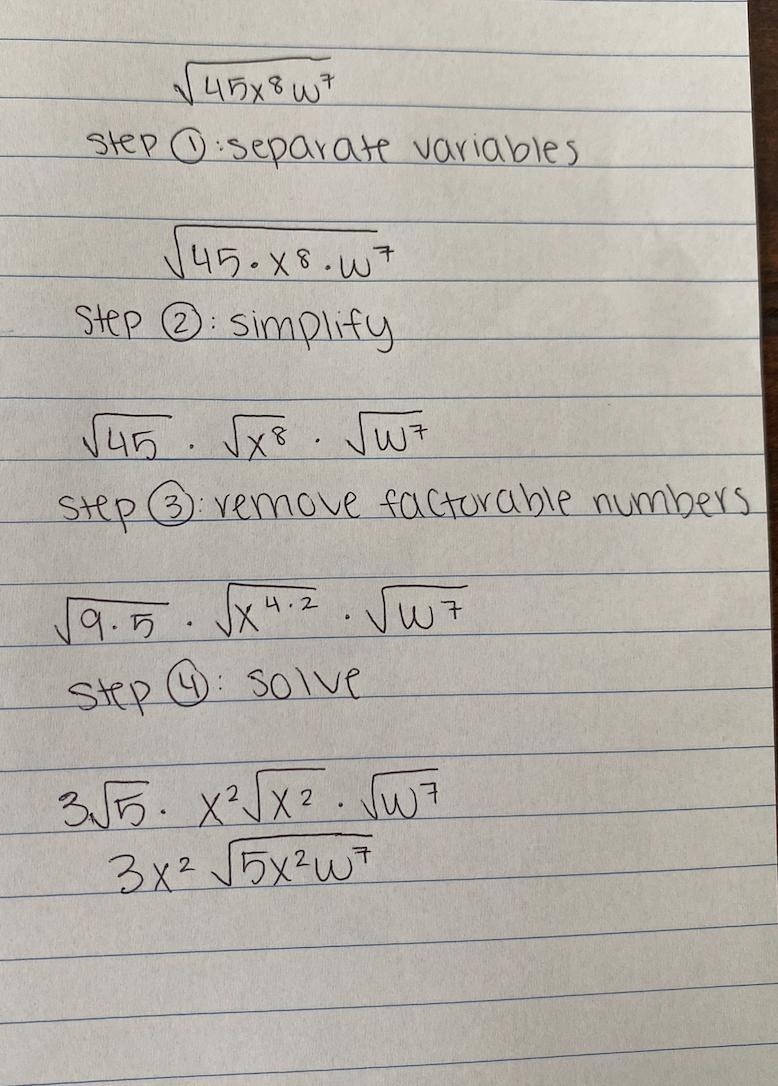 √45x⁸w⁷
Step ①: separate variables
√45·x⁸·w⁷
Step ②: simplify
√45 · √x⁸ · √w⁷
Step ③: remove factorable numbers
√9·5 · √x⁴·² · √w⁷
Step ④: solve
3√5 · x²√x² · √w⁷
3x² √5x²w⁷